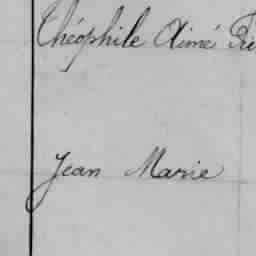 Théophile Aimé
Jean Marie